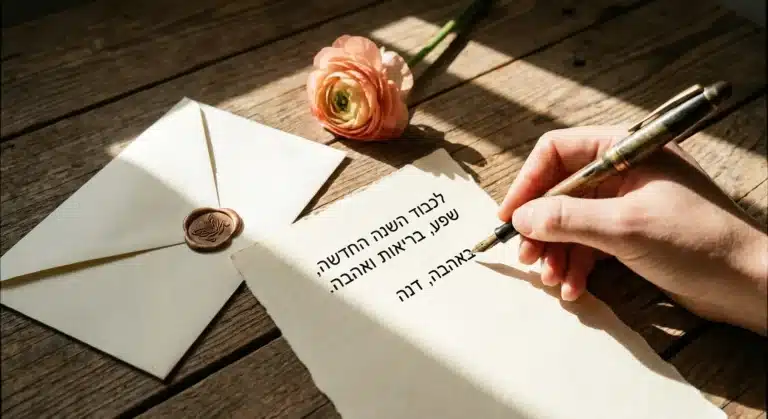 לכבוד השנה החדשה,
שפע, בריאות ואהבה.
באהבה, דנה